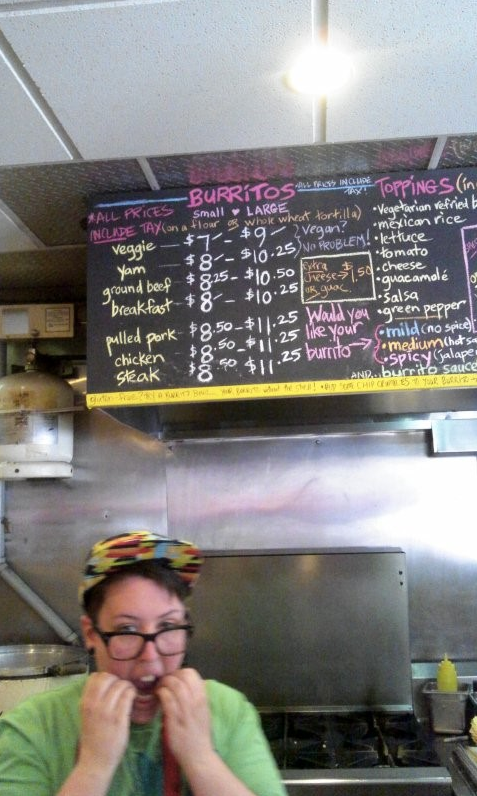 BURRITOS
*ALL PRICES INCLUDE TAX!
TOPPINGS (in
*ALL PRICES
INCLUDE TAX
small ♥ LARGE
(on a flour or whole wheat tortilla)
Veggie — $7 - $9
Yam — $8 - $10.25
ground beef $8.25 - $10.50
breakfast $8 - $10.25
pulled pork $8.50 - $11.25
chicken $8.50 - $11.25
steak $8.50 - $11.25
Vegan?
NO PROBLEM!
extra
cheese → $1.50
or guac
Would you
like your
burrito →
• Vegetarian refried b
• mexican rice
• lettuce
• tomato
• cheese
• guacamolé
• salsa
• green pepper
• mild (no spice)
• medium (hot sa
• spicy (jalape
AND... burrito sauce